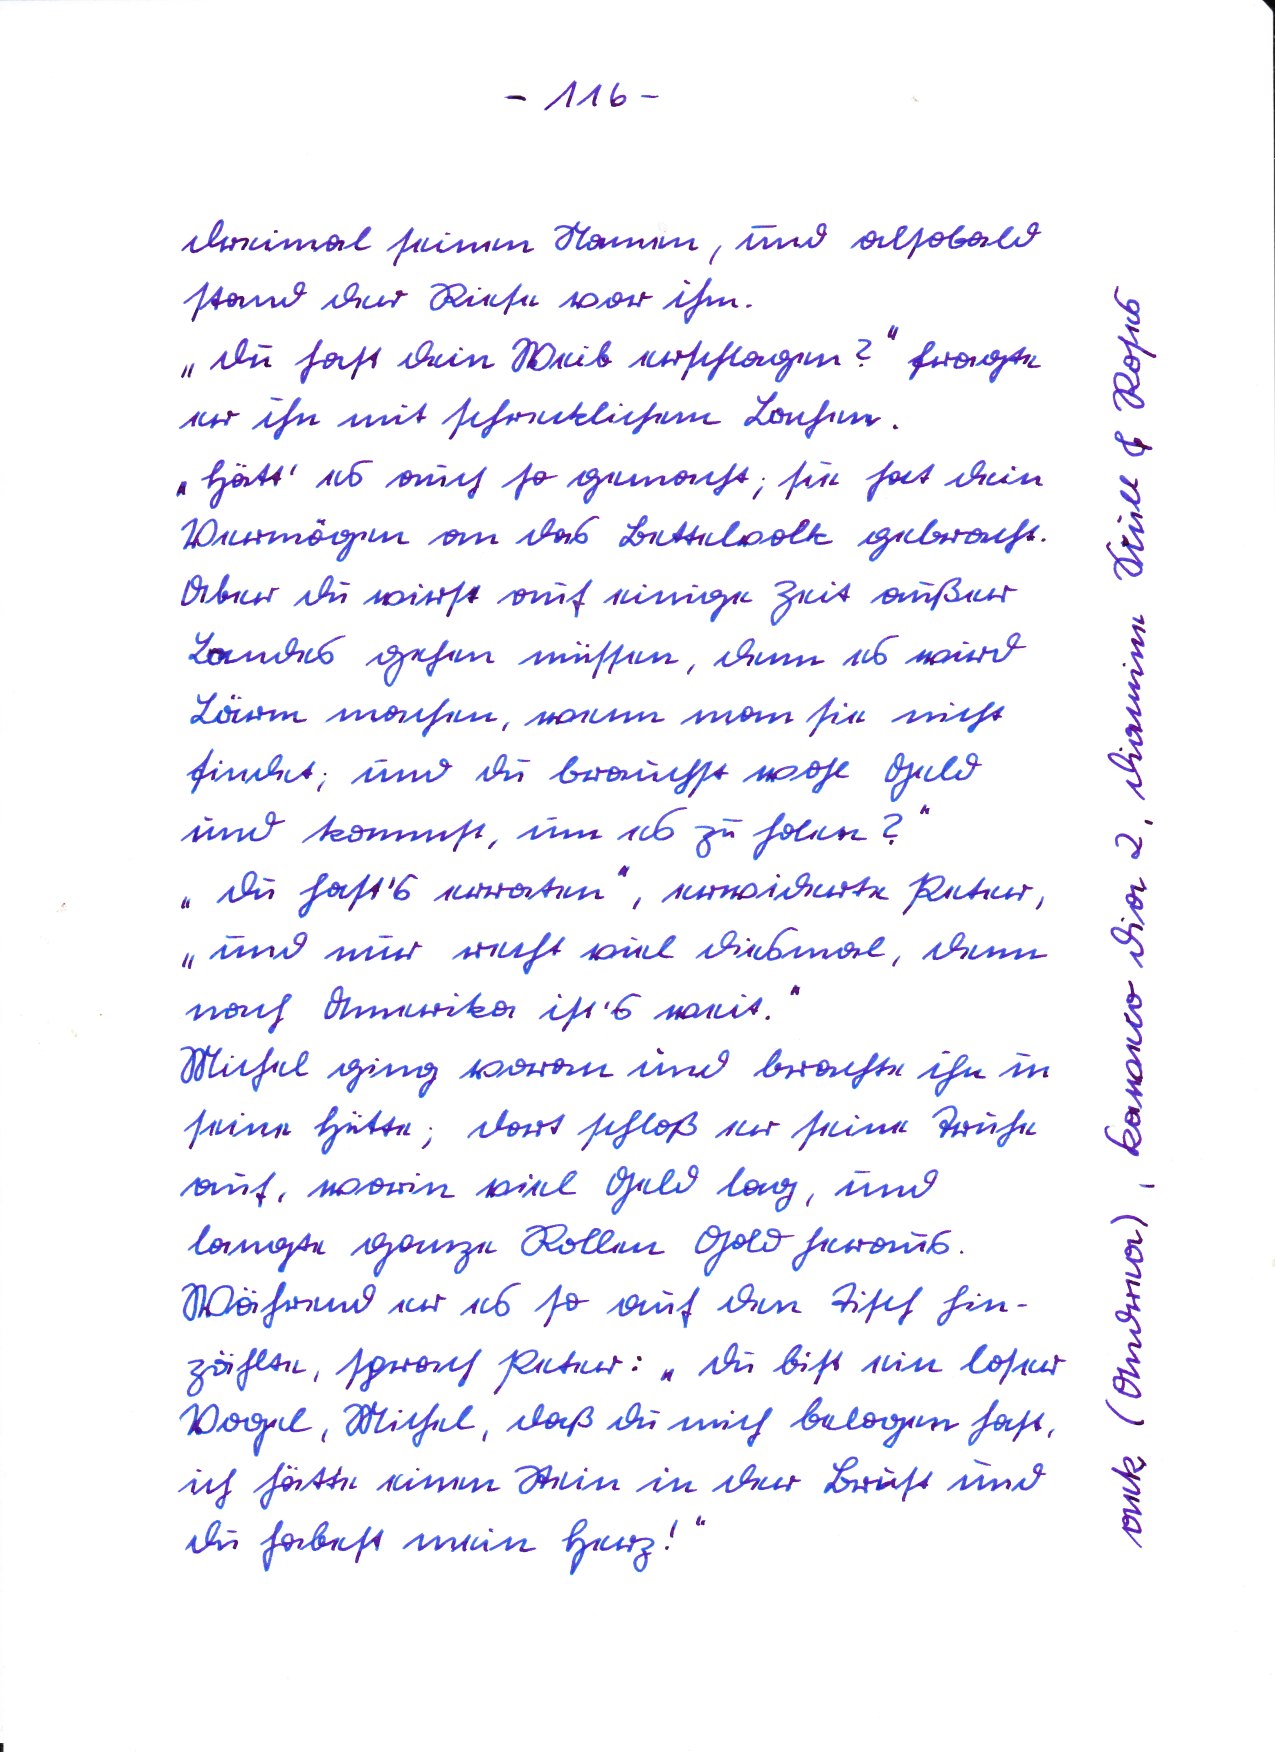 - 116 -
dreimal seinen Namen, und alsobald
stand der Riese vor ihm.
„Du hast dein Weib erschlagen?“ fragte
er ihn mit schrecklichem Lachen.
„Hätt' es auch so gemacht; sie hat dein
Vermögen an das Bettelvolk gebracht.
Aber du wirst auf einige Zeit außer
Landes gehen müssen, denn es wird
Lärm machen, wenn man sie nicht
findet; und du brauchst wohl Geld
und kommst, um es zu holen?“
„Du hast's erraten“, erwiderte Peter,
„und nur recht viel diesmal, denn
nach Amerika ist's weit.“
Michel ging voran und brachte ihn in
seine Hütte; dort schloß er seine Truhe
auf, worin viel Geld lag, und
langte ganze Rollen Gold heraus.
Während er es so auf den Tisch hin-
zählte, sprach Peter: „Du bist ein loser
Vogel, Michel, daß du mich belogen hast,
ich hätte einen Stein in der Brust und
du habest mein Herz!“